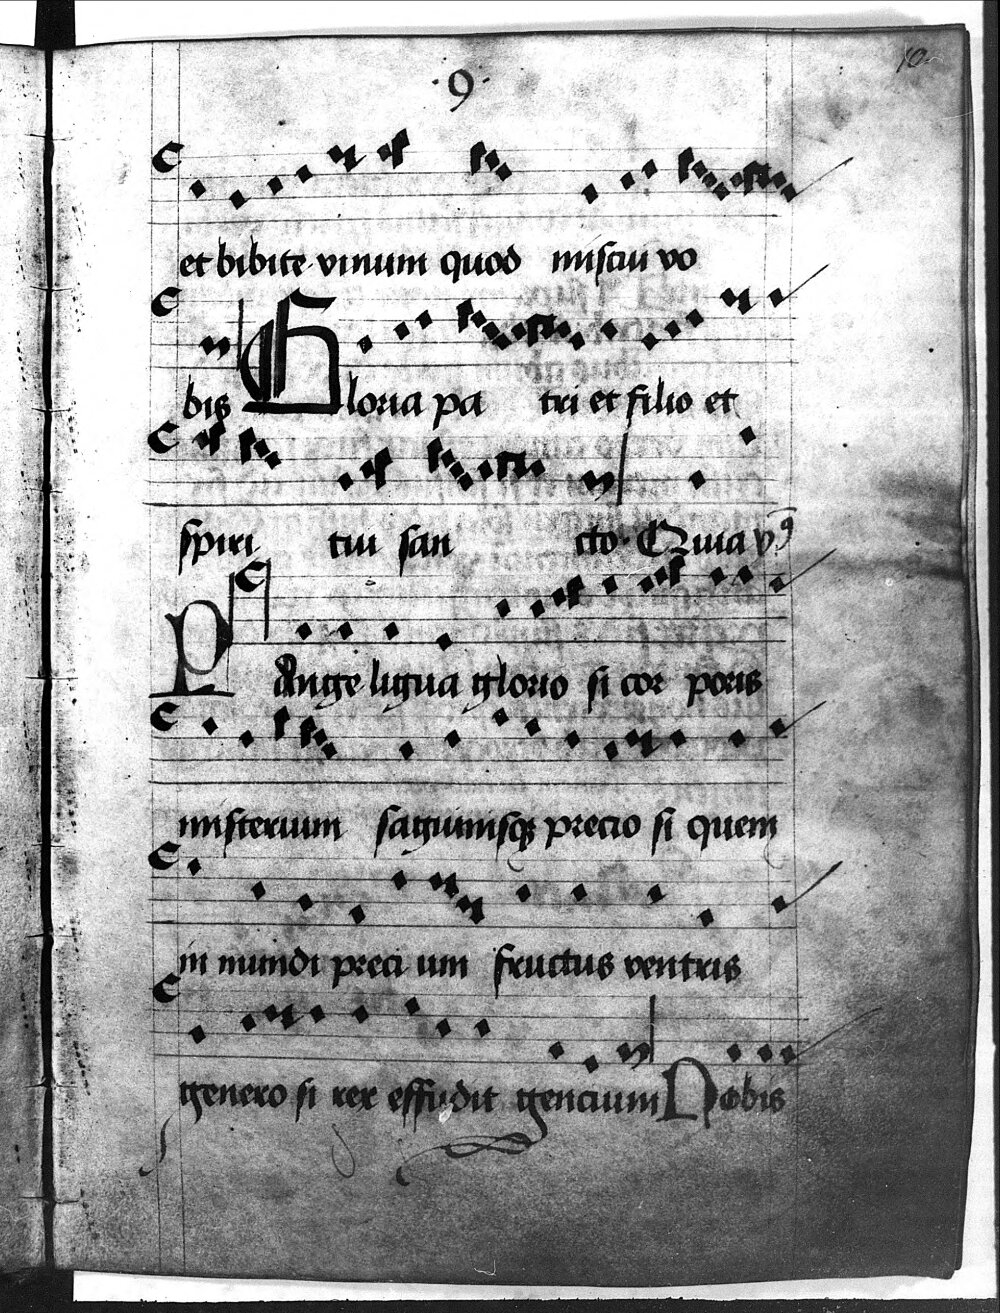 ·9·
10
et bibite vinum quod miscui vo
bis Gloria pa tri et filio et
spiri tui san cto· Quia vꝰ
PAnge ligua glorio si cor poris
misterium saguinisqꝫ precio si quem
in mundi preci um fructus ventris
genero si rex effudit gencium Nobis